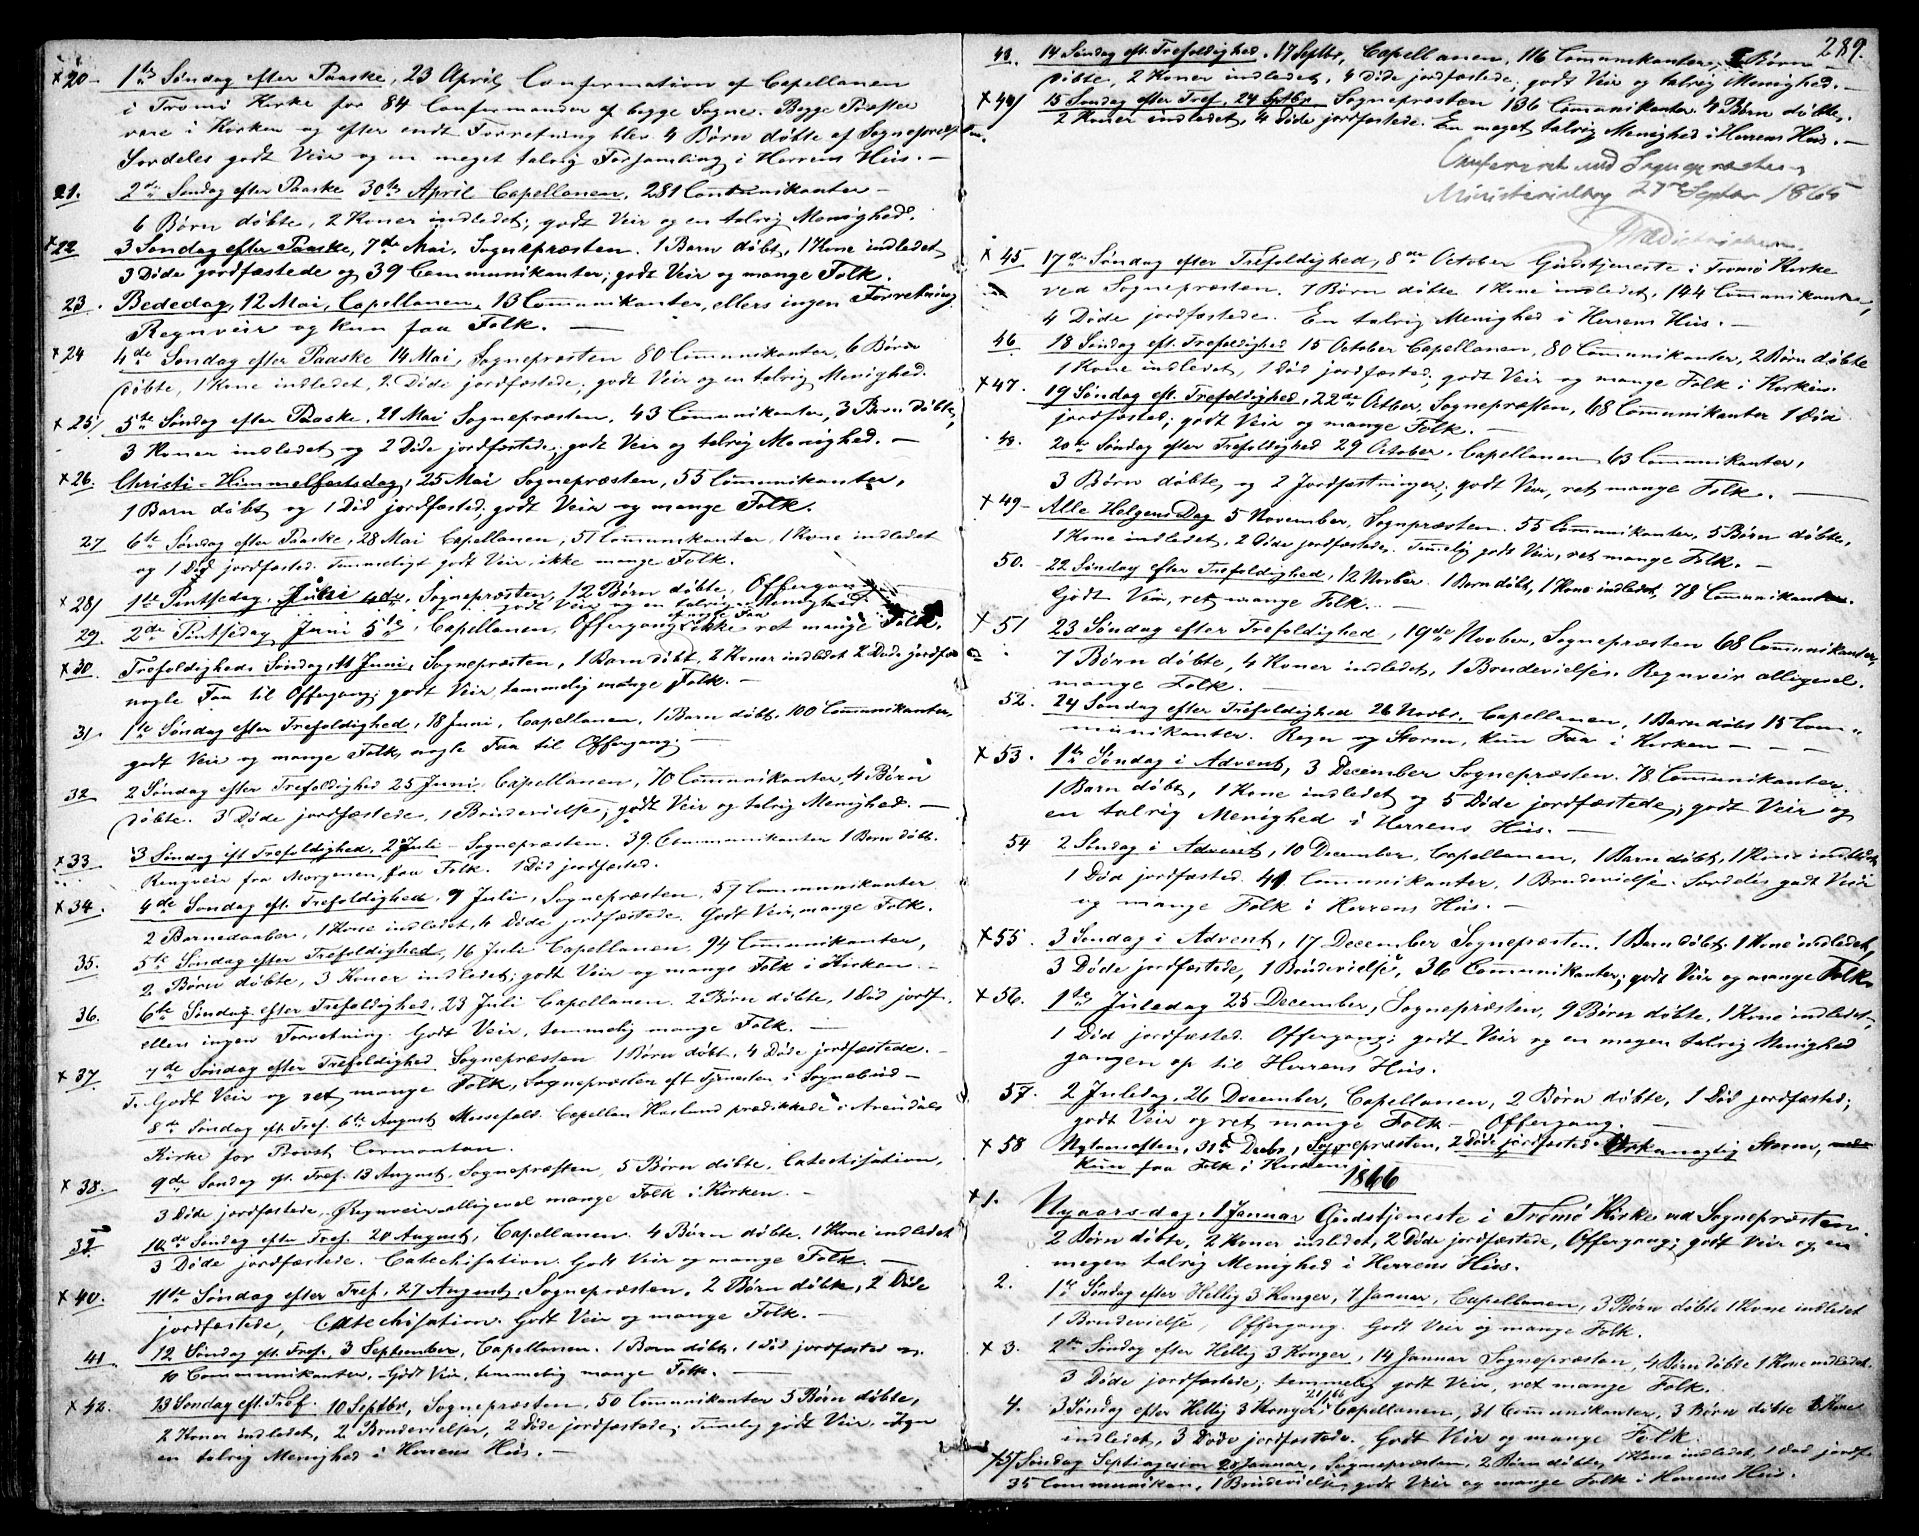 ×20– 1te Søndag efter Paaske, 23 April Confirmation af Capellanen
i Tromø Kirke for 84 Confirmander af begge Sogne. Begge Præster
vare i Kirken og efter endt Forretning blev 4 Børn døbte af Sognepræsten.
Særdeles godt Veir og en meget talrig Forsamling i Herrens Hus. –
21. 2den Søndag efter Paaske 30te April Capellanen, 281 Communikanter –
6 Børn døbte, 2 Koner indledet; godt Veir og en talrig Menighed.
×22 3 Søndag efter Paaske, 7de Mai, Sognepræsten. 1 Barn døbt, 1 Kone indledet
3 Døde jordfæstede og 39 Communikanter; godt Veir og mange Folk.
23. Bededag, 12 Mai, Capellanen, 13 Communikanter, ellers ingen Forretning
Regnveir og kun faa Folk. –
×24 4de Søndag efter Paaske 14 Mai, Sognepræsten 80 Communikanter, 6 Børn
døbte, 1 Kone indledet, 2 Døde jordfæstede; godt Veir og en talrig Menighed.
×25/ 5te Søndag efter Paaske, 21 Mai Sognepræsten, 43 Communikanter, 3 Børn døbte,
3 Koner indledet og 2 Døde jordfæstede; godt Veir og talrig Menighed. –
×26. Christi-Himmelfartsdag, 25 Mai Sognepræsten, 55 Communikanter,
1 Barn døbt og 1 Død jordfæsted; godt Veir og mange Folk.
27 6te Søndag efter Paaske, 28 Mai Capellanen, 51 Communikanter, 1 Kone indledet
og 1 Død jordfæsted. Temmeligt godt Veir, ikke mange Folk.
×28/ 1te Pintsedag, Juni 4de, Sognepræsten, 12 Børn døbte, Offergang
godt Veir og en talrig Menighed
29. 2de Pintsedag Juni 5te, Capellanen, Offergang nogle Faa ikke ret mange Folk.
×30. Trefoldigheds Søndag, 11 Juni, Sognepræsten, 1 Barn døbt, 2 Koner indledet 2 Døde jordfæs
nogle Faa til Offergang; godt Veir, temmelig mange Folk. –
31. 1te Søndag efter Trefoldighed, 18 Juni, Capellanen, 1 Barn døbt, 100 Communikanter,
godt Veir og mange Folk, nogle Faa til Offergang. –
32 2 Søndag efter Trefoldighed 25 Juni, Capellanen, 70 Communikanter, 4 Børn
døbte. 3 Døde jordfæstede, 1 Brudevielse; godt Veir og talrig Menighed. –
×33 3 Søndag eft Trefoldighed, 2 Juli – Sognepræsten. 39 Communikanter 1 Barn døbt.
Regnveir fra Morgenen, faa Folk. 1 Død jordfæsted.
×34. 4de Søndag eft. Trefoldighed, 9 Juli, Sognepræsten, 57 Communikanter
2 Barnedaaber, 1 Kone indledet, 4 Døde jordfæstede. Godt Veir, mange Folk.
35. 5te Søndag efter Trefoldighed, 16 Juli Capellanen, 94 Communikanter,
2 Børn døbte, 3 Koner indledet; godt Veir og mange Folk i Kirken. –
36. 6te Søndag efter Trefoldighed, 23 Juli Capellanen. 2 Børn døbte, 1 Død jordf.
ellers ingen Forretning. Godt Veir, temmelig mange Folk. –
×37 7de Søndag efter Trefoldighed Sognepræsten 1 Børn døbt, 4 Døde jordfæstede. –
Godt Veir og ret mange Folk, Sognepræsten eft Tjenesten i Sognebud –
8de Søndag eft. Tref. 6te August Messefald. Capellan Haslund prædikkede i Arendals
Kirke for Provst Cormontan.
×38. 9de Søndag eft. Tref. 13 August, Sognepræsten, 5 Børn døbte, Catechisation,
3 Døde jordfæstede, Regnveir alligevel mange Folk i Kirken. –
39. 10de Søndag efter Tref. 20 August, Capellanen. 4 Børn døbte. 1 Kone indledet
3 Døde jordfæstede. Catechisation. Godt Veir og mange Folk. –
×40. 11te Søndag efter Tref. 27 August, Sognepræsten, 2 Børn døbte, 2 Døde
jordfæstede, Catechisation. Godt Veir og mange Folk. –
41 12 Søndag eft. Tref. 3 September, Capellanen. 1 Barn døbt, 1 død jordfæsted og
10 Communikanter. Godt Veir, temmelig mange Folk. –
×42. 13 Søndag eft. Tref. 10 Septbr, Sognepræsten, 50 Communikanter 5 Børn døbte,
2 Koner indledet, 2 Brudevielser, 2 Døde jordfæstede; Temelig godt Veir
en talrig Menighed i Herrens Hus. –
289.
43. 14 Søndag eft. Trefoldighed. 17 Septbr, Capellanen, 116 Communikanter, 2 Børn
døbte, 2 Koner indledet, 4 Døde jordfæstede; godt Veir og talrig Menighed. –
×44/ 15 Søndag efter Tref. 24 Septbr Sognepræsten 136 Comunikanter 4 Børn døbte,
2 Koner indledet, 4 Døde jordfæstede. En meget talrig Menighed i Herrens Hus. –
Confereret med Sognepræstens
Ministerialbog 27de Septbr 1865
×45 17de Søndag efter Trefoldighed, 8de October Gudstjeneste i Tromø Kirke
ved Sognepræsten. 7 Børn døbte 1 Kone indledet, 144 Communikanter,
4 Døde jordfæstede. En talrig Menighed i Herrens Hus. –
46 18 Søndag eft. Trefoldighed 15 October Capellanen, 80 Communikanter, 2 Børn døbte
1 Kone indledet, 1 Død jordfæsted; godt Veir og mange Folk i Kirken.
×47. 19 Søndag eft. Trefoldighed, 22de Octber, Sognepræsten, 68 Comunikanter 1 Død
jordfæsted; godt Veir og mange Folk. –
48. 20de Søndag efter Trefoldighed 29 October. Capellanen 63 Communikanter,
3 Børn døbte, og 2 Jordfæstninger; godt Veir, ret mange Folk. –
×49– Alle Helgens Dag 5 November, Sognpræsten. 55 Communikanter, 5 Børn døbte,
1 Kone indledet, 2 Døde jordfæstede. Temelig godt Veir, ret mange Folk. –
50. 22 Søndag efter Trefoldighed, 12 Novber. 1 Barn døbt, 1 Kone indledet, 78 Communikanter.
Godt Veir, ret mange Folk. –
×51 23 Søndag efter Trefoldighed, 19de Novber, Sognepræsten 68 Communikanter,
7 Børn døbte, 4 Koner indledet, 1 Brudevielse. Regnveir alligevel
mange Folk. –
52. 24 Søndag efter Trefoldighed 26 Novbr. Capellanen, 1 Barn døbt 15 Com-
munikanter. Regn og Storm, kun Faa i Kirken – – –
×53. 1te Søndag i Advent, 3 December Sognepræsten. 78 Communikanter.
1 Barn døbt, 1 Kone indledet og 5 Døde jordfæstede; godt Veir og
en talrig Menighed i Herrens Hus. –
54 2 Søndag i Advent, 10 December, Capellanen, 1 Barn døbt, 1 Kone indledet,
1 Død jordfæsted. 41 Communikanter, 1 Brudevielse. Særdeles godt Veir
og mange Folk i Herrens Hus. –
×55. 3 Søndag i Advent, 17 December Sognepræsten. 1 Barn døbt, 1 Kone indledet,
3 Døde jordfæstede, 1 Brudevielse, 36 Communikanter; godt Veir og mange Folk.
×56. 1te Juledag 25 December, Sognepræsten, 9 Børn døbte, 1 Kone indledet,
1 Død jordfæsted. Offergang; godt Veir og en megen talrig Menighed
gangen op til Herrens Hus.
57. 2 Juledag, 26 December, Capellanen, 2 Børn døbte, 1 Død jordfæsted;
godt Veir og ret mange Folk – Offergang. –
×58 Nytaarsaften, 31te Decbr, Sognepræsten, 2 Døde jordfæstede Orkanagtig Storm,
kun faa Folk i Kirken.
1866
×1. Nyaarsdag, 1 Januar Gudstjeneste i Tromø Kirke ved Sognepræsten
2 Børn døbte, 2 Koner indledet, 2 Døde jordfæstede, Offergang; godt Veir og en
megen talrig Menighed i Herrens Hus.
2. 1te Søndag efter Hellig 3 Konger, 7 Januar, Capellanen, 3 Børn døbte 1 Kone indledet
1 Brudevielse, Offergang. Godt Veir og mange Folk.
×3. 2den Søndag efter Hellig 3 Konger, 14 Januar Sognepræsten, 4 Børn døbte 1 Kone indledet.
3 Døde jordfæstede; temmelig godt Veir, ret mange Folk.
4. 3 Søndag efter Hellig 3 Konger, 21/1 66 Capellanen, 31 Communikanter, 3 Børn døbte 1 Kone
indledet, 3 Døde jordfæstede. Godt Veir og mange Folk.
×5/ Søndag Septuagesima 28 Januar, Sognepræsten, 2 Børn døbte, 1 Kone indledet, 1 død jordfæ
35 Communikan, 1 Brudevielse, godt Veir og mange Folk i Herrens Hus.